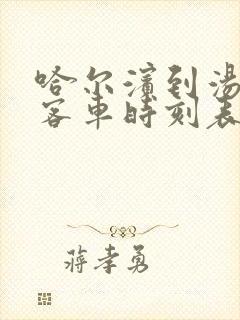 哈尔滨到汤
客车时刻表
蒋孝勇